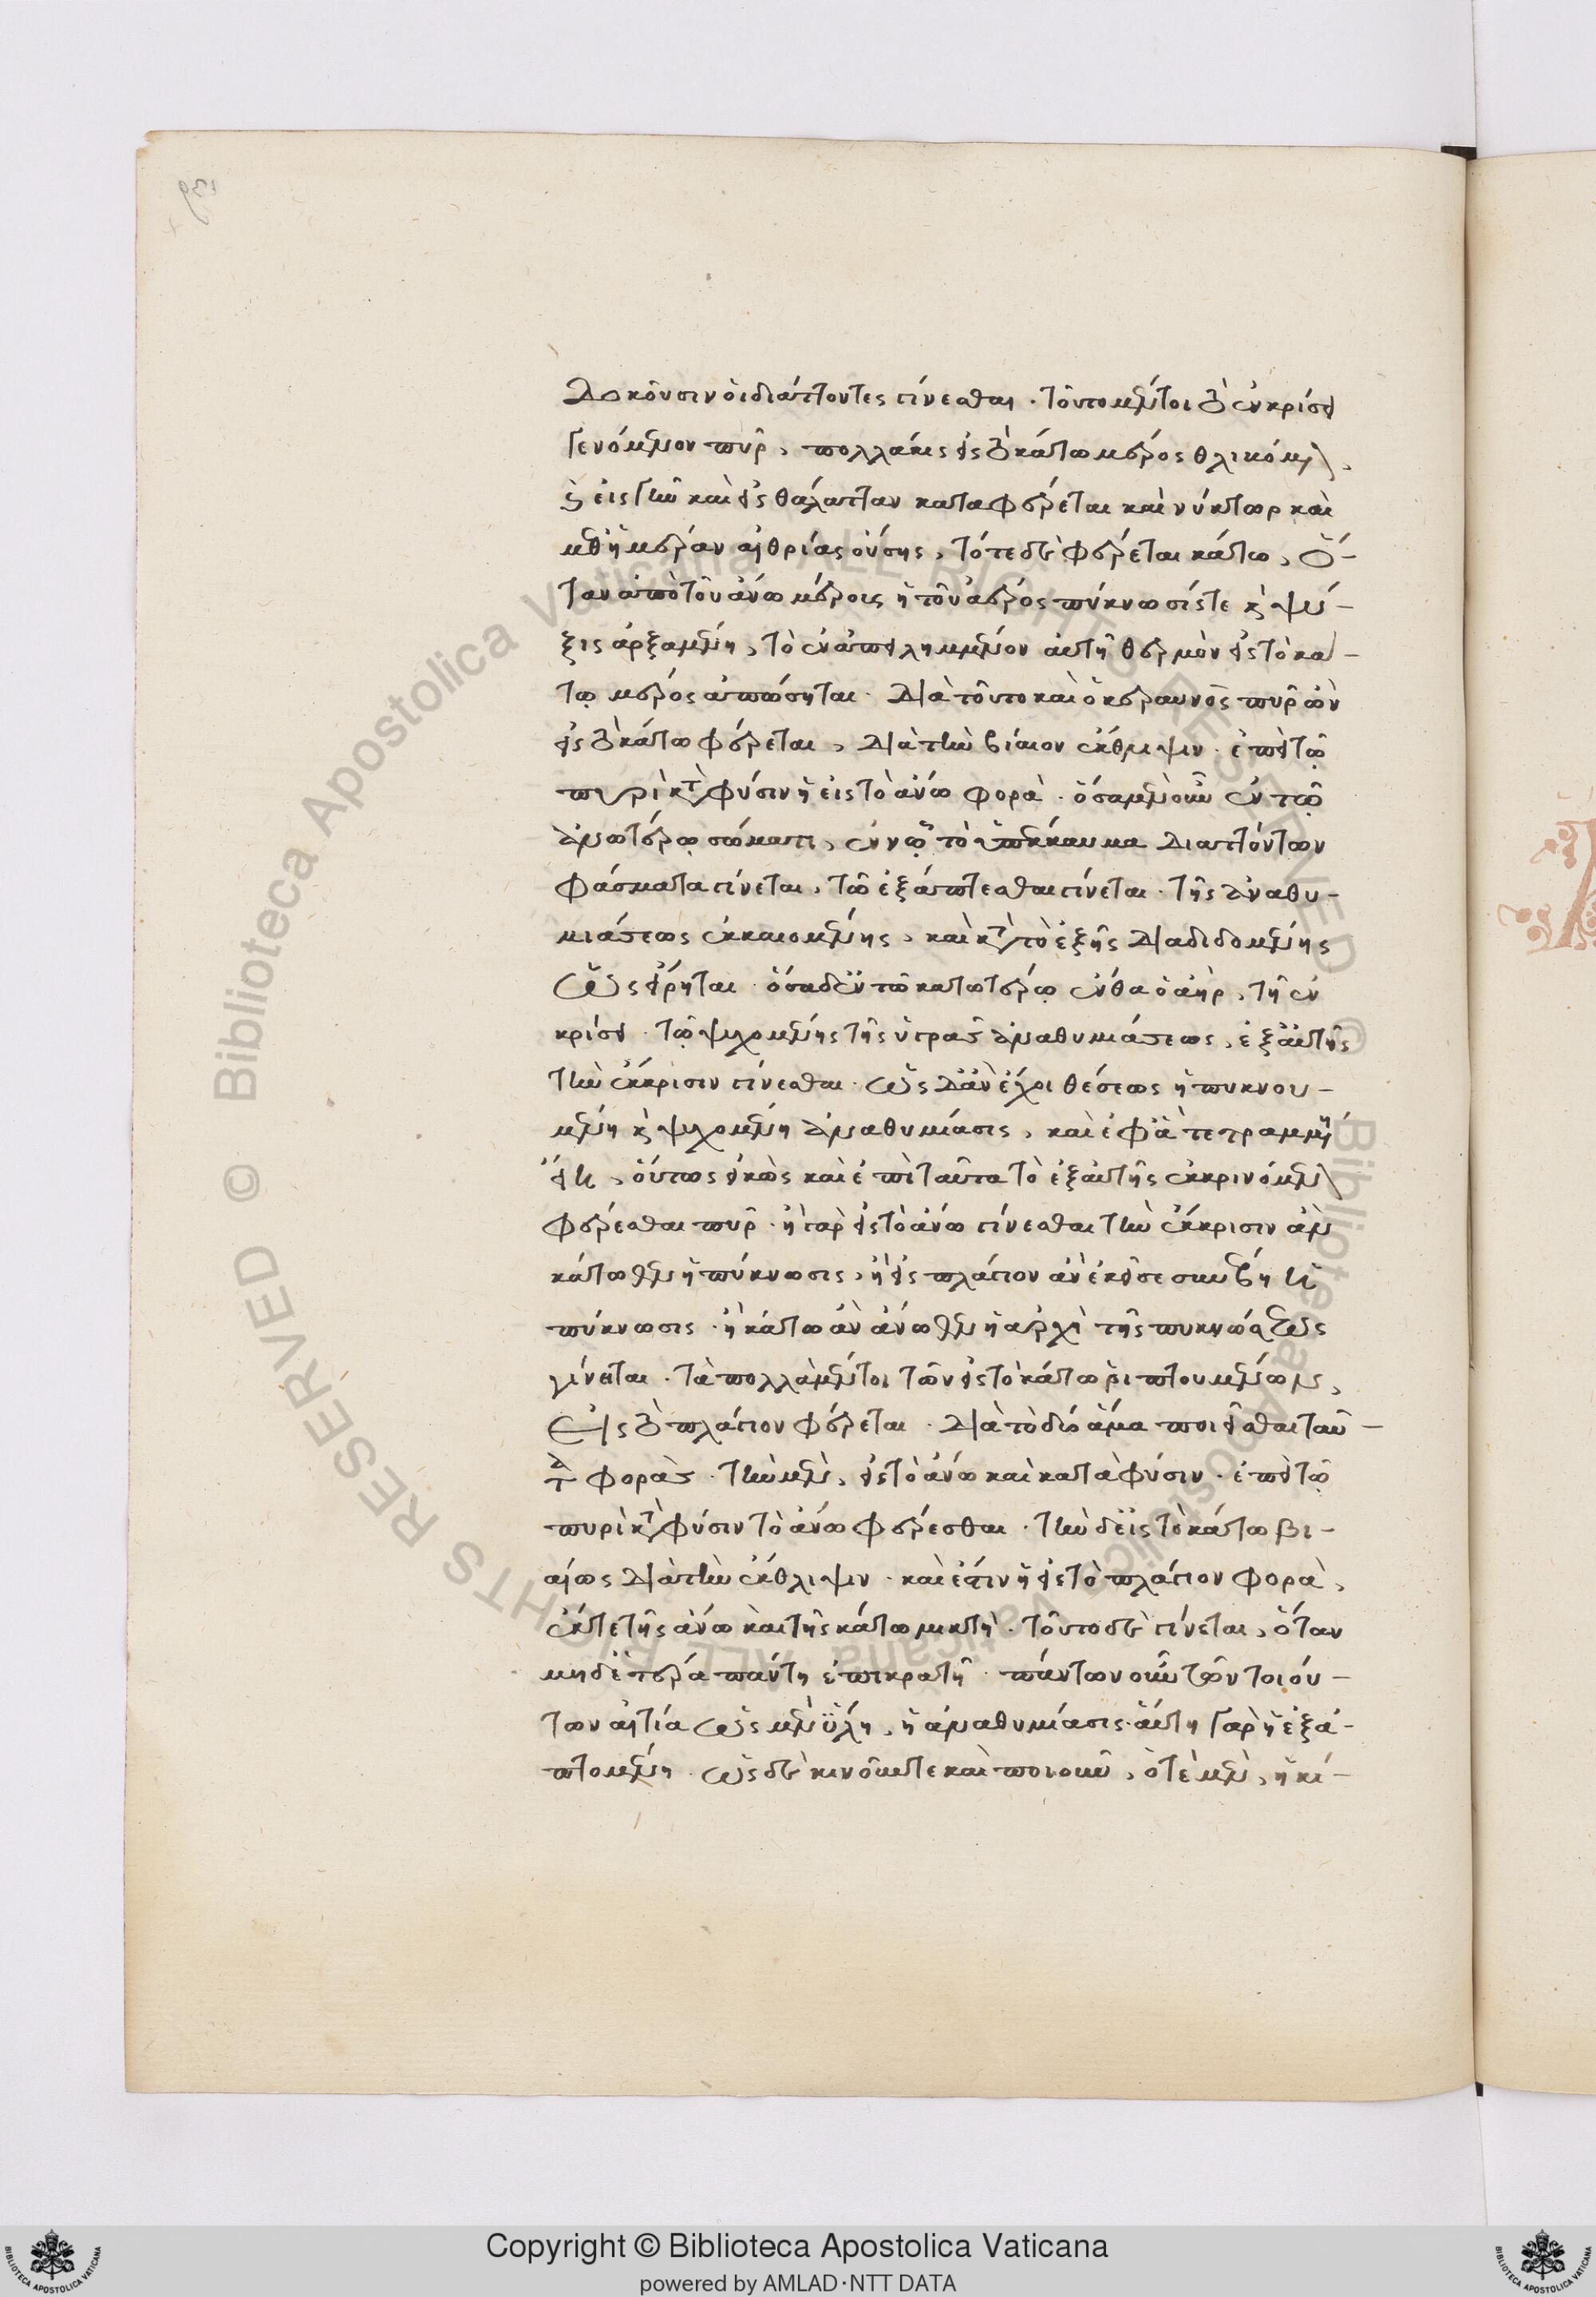 δοκοῦσιν οἱ διάττοντες γίνεσθαι · τοῦτο μέντοι τὸ ἐν κρίσει
γενόμενον πῦρ, πολλάκις εἰς τὸ κάτω μέρος θλιβόμενον,
καὶ εἰς γῆν καὶ εἰς θάλατταν καταφέρεται καὶ νύκτωρ καὶ
μεθ' ἡμέραν αἰθρίας οὔσης, τότε δὲ φέρεται κάτω, ὅ-
ταν ἀπὸ τοῦ ἄνω μέρους ἡ τοῦ ἀέρος πύκνωσίς τε καὶ ψύ-
ξις ἀρξαμένη, τὸ ἐναπειλημμένον αὐτῇ θερμὸν εἰς τὸ κά-
τω μέρος ἀπώσηται · διὰ τοῦτο καὶ ὁ κεραυνὸς πῦρ ὢν
εἰς τὸ κάτω φέρεται, διὰ τὴν βίαιον ἔκθλιψιν · ἐπεὶ τῷ
πυρὶ κατὰ φύσιν ἡ εἰς τὸ ἄνω φορά · ὅσα μὲν οὖν ἐν τῷ
ἀνωτέρω σώματι, ἐν ᾧ τὸ ὑπέκκαυμα διαττόντων
φάσματα γίνεται, τῷ ἐξάπτεσθαι γίνεται · τῆς ἀναθυ-
μιάσεως ἐκκαιομένης, καὶ κατὰ τὸ ἑξῆς διαδιδομένης
ὡς εἴρηται · ὅσα δὲ ἐν τῷ κατωτέρω ἔνθα ὁ ἀήρ, τῇ ἐν
κρίσει · τῷ ψυχομένης τῆς ὑγρᾶς ἀναθυμιάσεως, ἐξ αὐτῆς
τὴν ἔκκρισιν γίνεσθαι · ὡς δ' ἂν ἔχοι θέσεως ἡ πυκνου-
μένη καὶ ψυχομένη ἀναθυμίασις, καὶ ἐφ' ἃ τετραμμένη
εἴη, οὕτως εἰκὸς καὶ ἐπὶ ταῦτα τὸ ἐξ αὐτῆς ἐκκρινόμενον
φέρεσθαι πῦρ · ἢ γὰρ εἰς τὸ ἄνω γίνεσθαι τὴν ἔκκρισιν ἂν
κάτωθεν ἡ πύκνωσις, ἢ εἰς πλάγιον ἂν ἐκεῖσε συμβῇ ἡ
πύκνωσις · ἢ κάτω ἂν ἄνωθεν ἡ ἀρχὴ τῆς πυκνώσεως
γίνεται · τὰ πολλὰ μέντοι τῶν εἰς τὸ κάτω ῥιπτουμένων,
εἰς τὸ πλάγιον φέρεται · διὰ τὸ δύο ἅμα ποιεῖσθαι ταύ-
τας φοράς · τὴν μὲν, εἰς τὸ ἄνω καὶ κατὰ φύσιν · ἐπεὶ τῷ
πυρὶ κατὰ φύσιν τὸ ἄνω φέρεσθαι · τὴν δὲ εἰς τὸ κάτω βι-
αίως διὰ τὴν ἔκθλιψιν · καὶ ἔστιν ἡ εἰς τὸ πλάγιον φορά,
ἔκ τε τῆς ἄνω καὶ τῆς κάτω μικτή · τοῦτο δὲ γίνεται, ὅταν
μηδετέρα πάντη ἐπικρατῇ · πάντων οὖν τῶν τοιού-
των αἰτία ὡς μὲν ὕλη, ἡ ἀναθυμίασις · αὕτη γὰρ ἡ ἐξα-
πτομένη · ὡς δὲ κινοῦν τε καὶ ποιοῦν, ὁτὲ μὲν, ἡ κί-